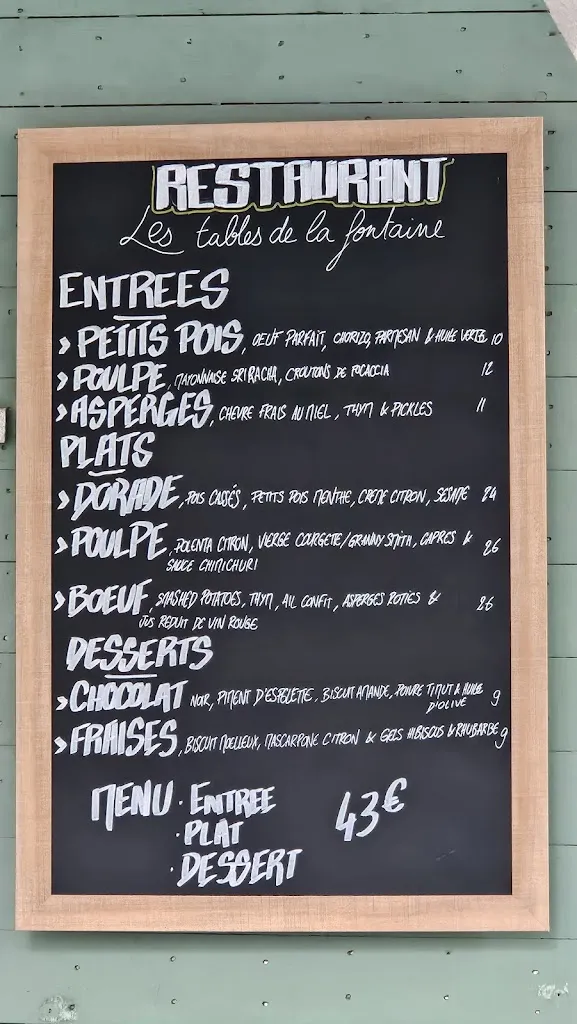 RESTAURANT
Les tables de la fontaine
ENTREES
> PETITS POIS, OEUF PARFAIT, CHORIZO, PARMESAN & HUILE VERTE 10
> POULPE, MAYONNAISE SRIRACHA, CROUTONS DE FOCACCIA 12
> ASPERGES, CHEVRE FRAIS AU MIEL, THYM & PICKLES 11
PLATS
> DORADE, POIS CASSÉS, PETITS POIS MENTHE, CREME CITRON, SESAME 24
> POULPE, POLENTA CITRON, VIERGE COURGETE/GRANNY SMITH, CAPRES & 26
SAUCE CHIMICHURI
> BOEUF, SMASHED POTATOES, THYM, AIL CONFIT, ASPERGES ROTIES & 26
JUS REDUIT DE VIN ROUGE
DESSERTS
> CHOCOLAT NOIR, PIMENT D'ESPELETTE, BISCUIT AMANDE, POIVRE TIMUT & HUILE 9
D'OLIVE
> FRAISES, BISCUIT MOELLEUX, MASCARPONE CITRON & GELS HIBISCUS & RHUBARBE 9
MENU · ENTREE 43€
· PLAT
· DESSERT